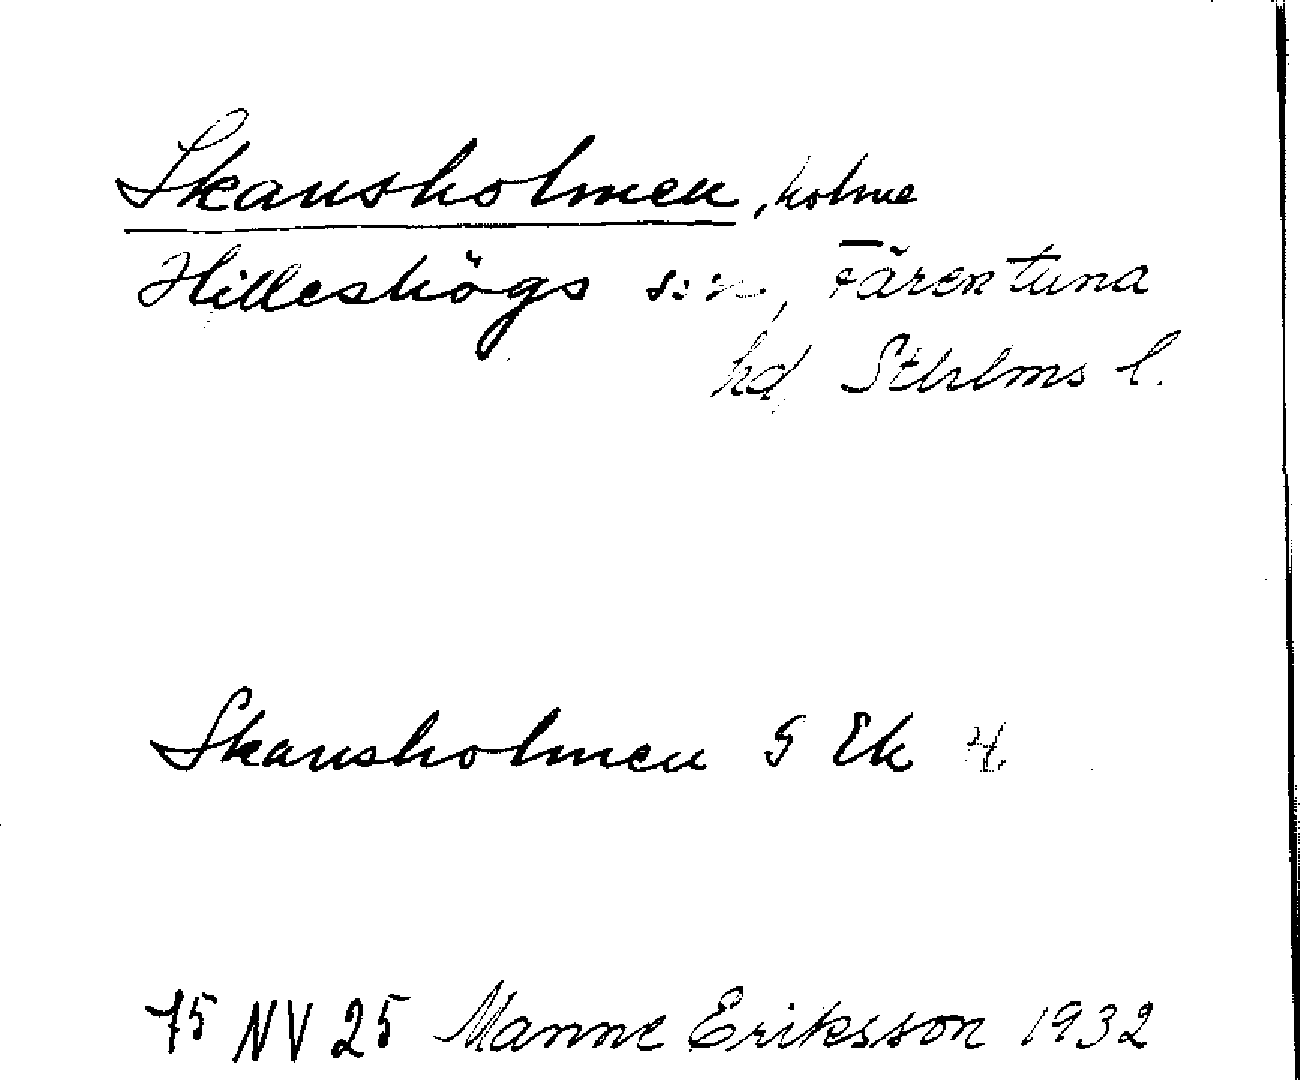 Skansholmen, holme
Hilleshögs sn, Färentuna
hd Sthlms l.
Skansholmen G Ek 4
75 NV 25 Manne Eriksson 1932